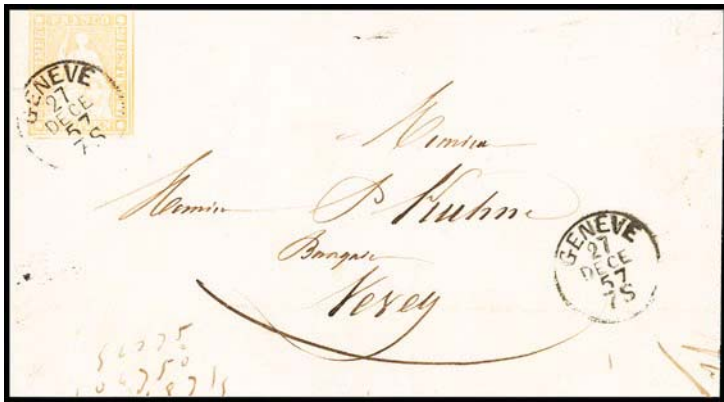 FRANCO
GENEVE
27
DECE
57
7S
Monsieur
Monsieur P Kuhne
Banquier
Vevey
GENEVE
27
DECE
57
7S